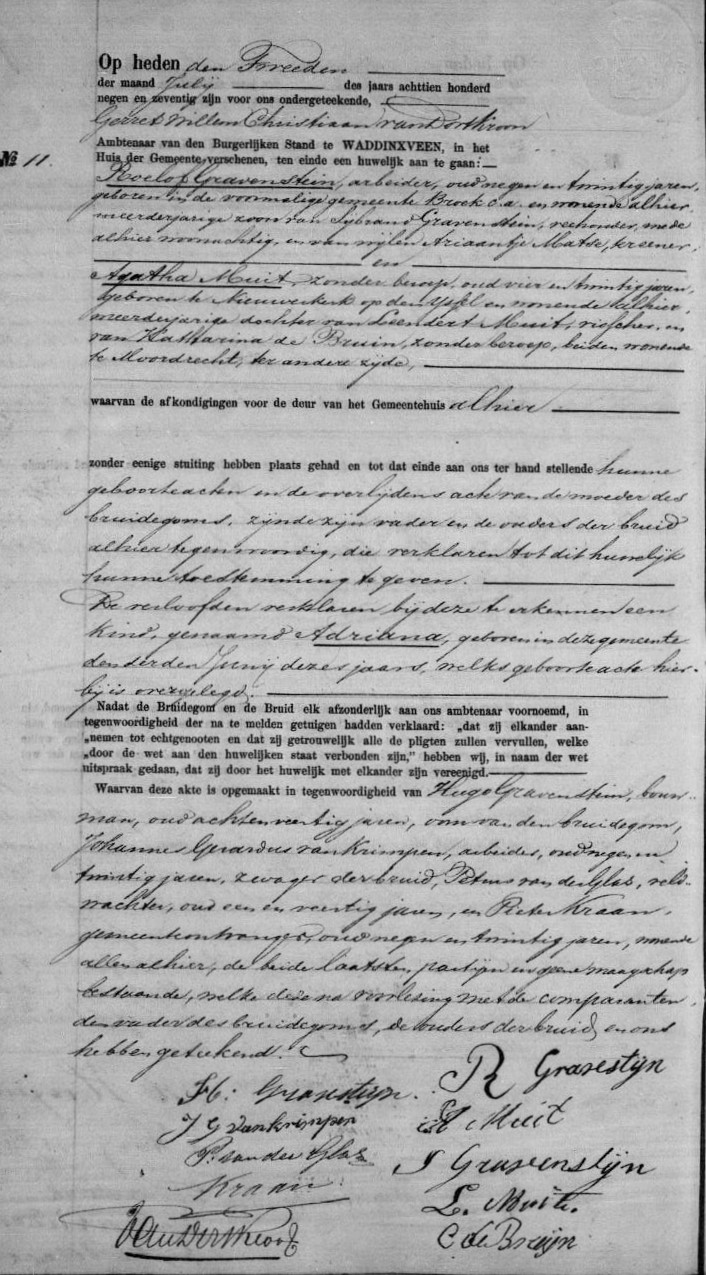 Op heden den Tweeden
der maand Julij des jaars achttien honderd
negen en zeventig zijn voor ons ondergeteekende,
Gerret Willem Christiaan van Dorth
Ambtenaar van den Burgerlijken Stand te WADDINXVEEN, in het
No 11. Huis der Gemeente verschenen, ten einde een huwelijk aan te gaan:
Roelof Gravenstein, arbeider, oud negen en twintig jaren,
geboren in de voormalige gemeente Broek c.a. en wonende alhier,
meerderjarige zoon van Sijbrand Gravenstein, veehouder, mede
alhier woonachtig, en van wijlen Ariaantje Matse, ter eener
en
Agatha Muit, zonder beroep, oud vier en twintig jaren,
geboren te Nieuwerkerk op den IJssel en wonende alhier,
meerderjarige dochter van Leendert Muit, visscher, en
van Katharina de Bruin, zonder beroep, beiden wonende
te Moordrecht, ter andere zijde,
waarvan de afkondigingen voor de deur van het Gemeentehuis alhier
zonder eenige stuiting hebben plaats gehad en tot dat einde aan ons ter hand stellende hunne
geboorteacten en de overlijdens acte van de moeder des
bruidegoms, zijnde zijn vader en de ouders der bruid
alhier tegenwoordig, die verklaren tot dit huwelijk
hunne toestemming te geven.
De verloofden verklaren bij deze te erkennen een
kind, genaamd Adriana, geboren in deze gemeente
den derden Junij dezes jaars, welks geboorte acte hier-
bij is overgelegd.
Nadat de Bruidegom en de Bruid elk afzonderlijk aan ons ambtenaar voornoemd, in
tegenwoordigheid der na te melden getuigen hadden verklaard: „dat zij elkander aan-
„nemen tot echtgenooten en dat zij getrouwelijk alle de pligten zullen vervullen, welke
„door de wet aan den huwelijken staat verbonden zijn,” hebben wij, in naam der wet
uitspraak gedaan, dat zij door het huwelijk met elkander zijn vereenigd.
Waarvan deze akte is opgemaakt in tegenwoordigheid van Hugo Gravenstein, bouw-
man, oud achtenveertig jaren, oom van den bruidegom,
Johannes Gerardus van Krimpen, arbeider, oud negen en
twintig jaren, zwager der bruid, Petrus van der Glas, veld-
wachter, oud een en veertig jaren, en Pieter Kraan,
gemeenteontvanger, oud negen en twintig jaren, wonende
allen alhier, de beide laatsten partijen in geene maagschap
bestaande, welke deze na voorlezing met de comparanten,
den vader des bruidegoms, de ouders der bruid, en ons
hebben geteekend.
H: Gravestijn. R Gravestijn
J G van Krimpen A Muit
P. van der Glas S Gravenstijn
Kraan L. Muit.
C de Bruijn